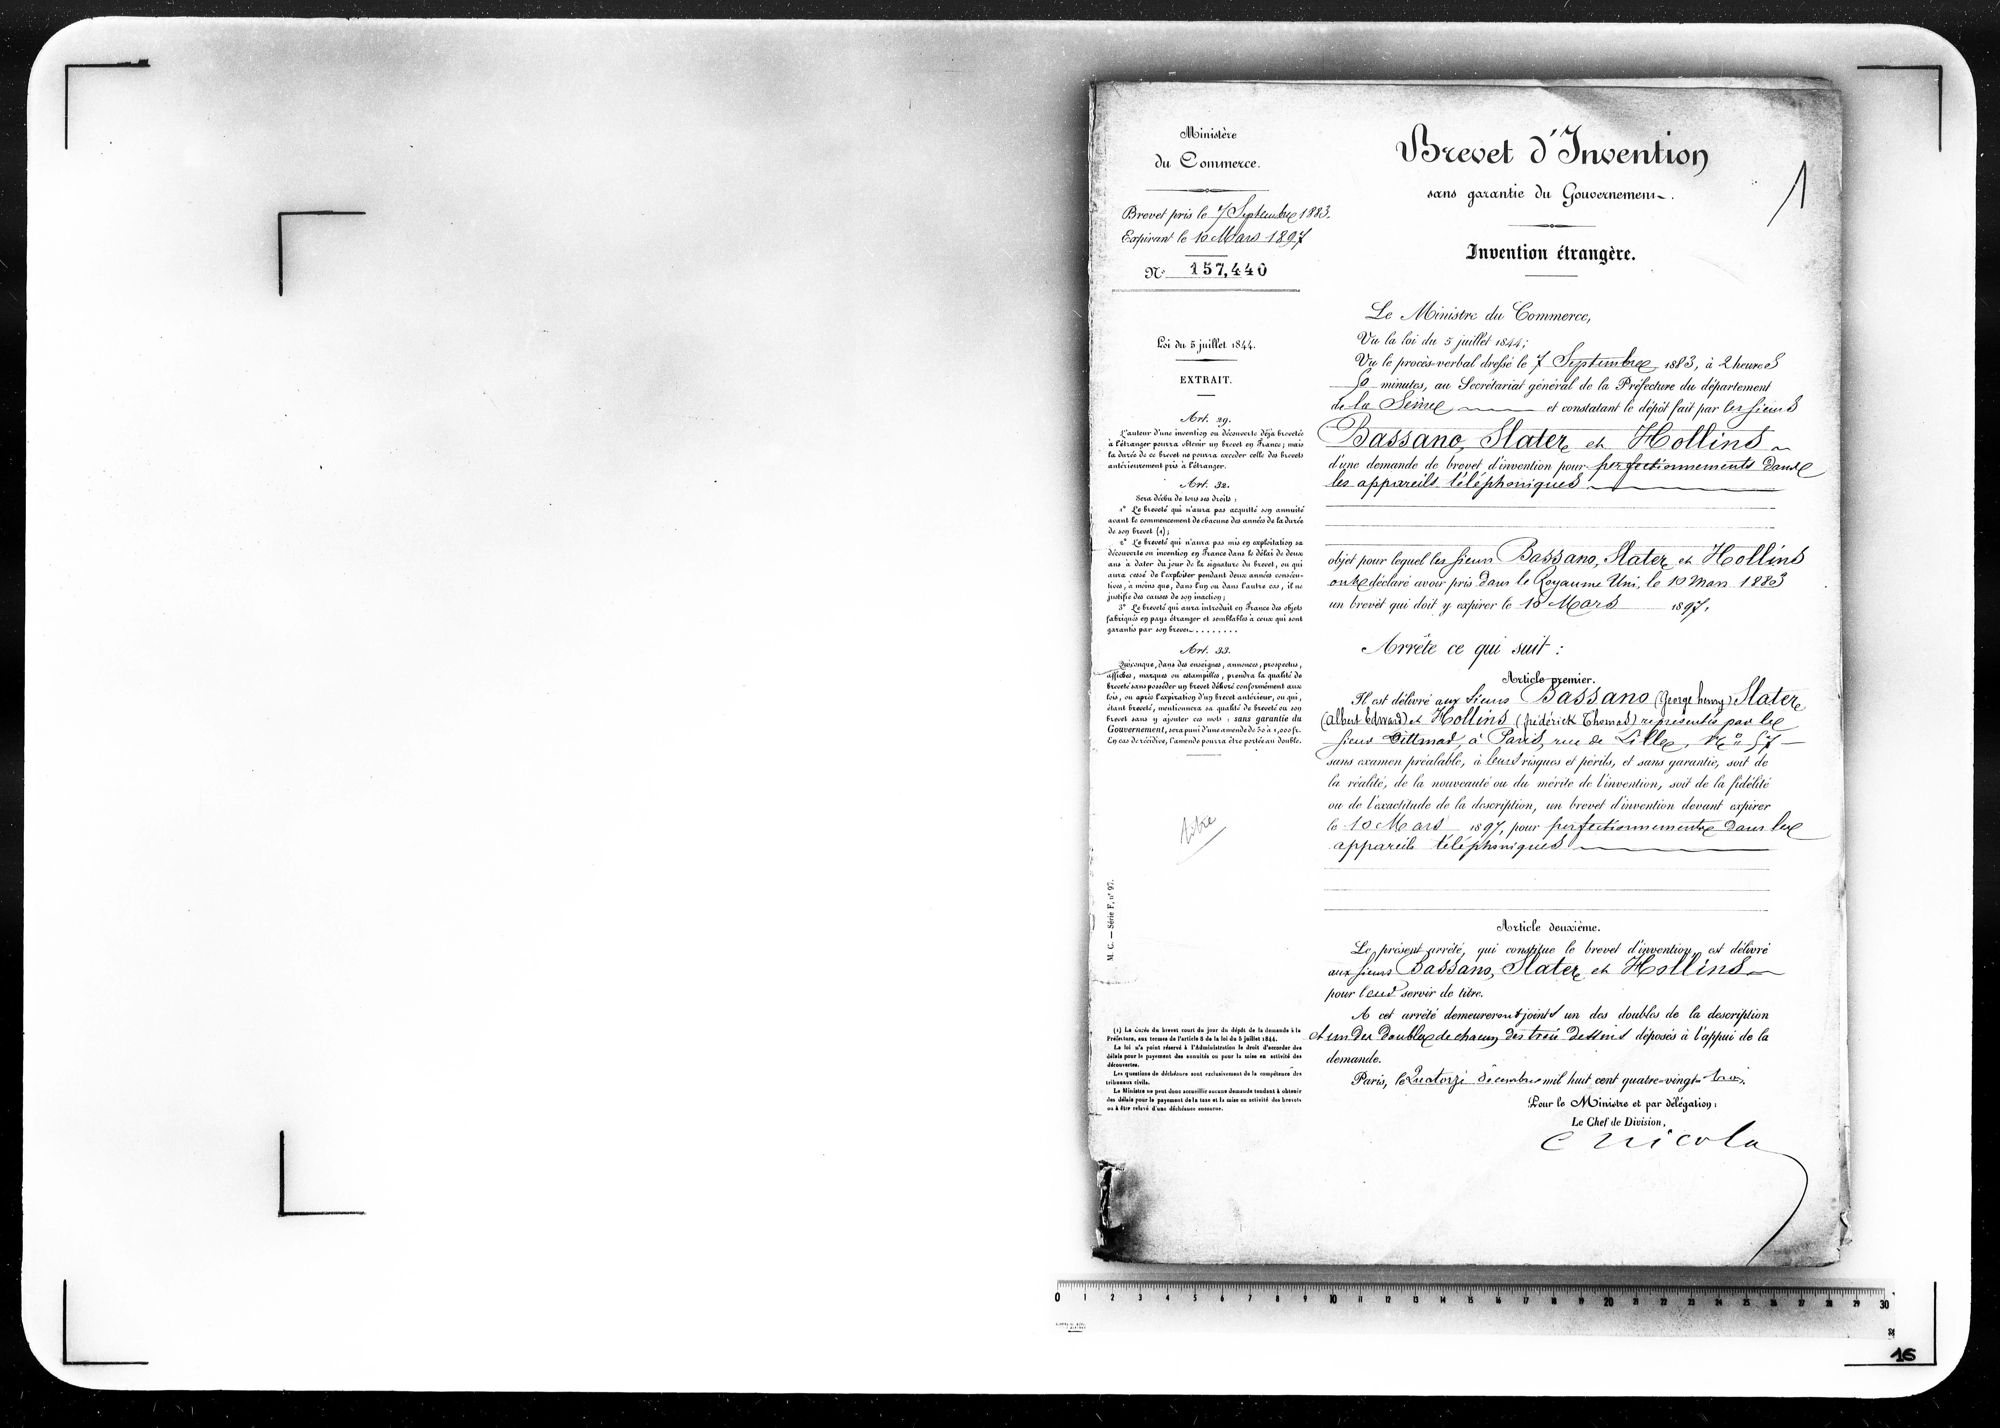 Ministère
du Commerce.
Brevet pris le 7 Septembre 1883.
Expirant le 10 Mars 1897
N° 157,440
Loi du 5 juillet 1844.
EXTRAIT.
Art. 29.
L'auteur d'une invention ou découverte déjà brevetée
à l'étranger pourra obtenir un brevet en France; mais
la durée de ce brevet ne pourra excéder celle des brevets
antérieurement pris à l'étranger.
Art. 32.
Sera déchu de tous ses droits :
1° Le breveté qui n'aura pas acquitté son annuité
avant le commencement de chacune des années de la durée
de son brevet (1);
2° Le breveté qui n'aura pas mis en exploitation sa
découverte ou invention en France dans le délai de deux
ans à dater du jour de la signature du brevet, ou qui
aura cessé de l'exploiter pendant deux années consécu-
tives, à moins que, dans l'un ou dans l'autre cas, il ne
justifie des causes de son inaction;
3° Le breveté qui aura introduit en France des objets
fabriqués en pays étranger et semblables à ceux qui sont
garantis par son brevet........
Art. 33.
Quiconque, dans des enseignes, annonces, prospectus,
affiches, marques ou estampilles, prendra la qualité de
breveté sans posséder un brevet délivré conformément aux
lois, ou après l'expiration d'un brevet antérieur, ou qui,
étant breveté, mentionnera sa qualité de breveté ou son
brevet sans y ajouter ces mots : sans garantie du
Gouvernement, sera puni d'une amende de 50 à 1,000 fr.
En cas de récidive, l'amende pourra être portée au double.
titre
M. C. — Série F, n° 97.
(1) La durée du brevet court du jour du dépôt de la demande à la
Préfecture, aux termes de l'article 8 de la loi du 5 juillet 1844.
La loi n'a point réservé à l'Administration le droit d'accorder des
délais pour le payement des annuités ou pour la mise en activité des
découvertes.
Les questions de déchéance sont exclusivement de la compétence des
tribunaux civils.
Le Ministre ne peut donc accueillir aucune demande tendant à obtenir
des délais pour le payement de la taxe et la mise en activité des brevets
ou à être relevé d'une déchéance encourue.
Brevet d'Invention
1
sans garantie du Gouvernement.
Invention étrangère.
Le Ministre du Commerce,
Vu la loi du 5 juillet 1844;
Vu le procès-verbal dressé le 7 Septembre 1883, à 2 heures
50 minutes, au Secrétariat général de la Préfecture du département
de la Seine et constatant le dépôt fait par les sieurs
Bassano, Slater et Hollins
d'une demande de brevet d'invention pour perfectionnements dans
les appareils téléphoniques
objet pour lequel les sieurs Bassano, Slater et Hollins
ont déclaré avoir pris dans le Royaume Uni, le 10 Mars 1883
un brevet qui doit y expirer le 10 Mars 1897.
Arrête ce qui suit :
Article premier.
Il est délivré aux sieurs Bassano (George henry) Slater
(Albert Edward) et Hollins (frédérick Thomas) représentés par le
sieur Dittmar, à Paris, rue de Lille, N° 57
sans examen préalable, à leurs risques et périls, et sans garantie, soit de
la réalité, de la nouveauté ou du mérite de l'invention, soit de la fidélité
ou de l'exactitude de la description, un brevet d'invention devant expirer
le 10 Mars 1897, pour perfectionnements dans les
appareils téléphoniques
Article deuxième.
Le présent arrêté, qui constitue le brevet d'invention, est délivré
aux sieurs Bassano, Slater et Hollins
pour leur servir de titre.
A cet arrêté demeureront joints un des doubles de la description
et un des doubles de chacun des trois dessins déposés à l'appui de la
demande.
Paris, le Quatorze décembre mil huit cent quatre-vingt-trois.
Pour le Ministre et par délégation :
Le Chef de Division,
0 1 2 3 4 5 6 7 8 9 10 11 12 13 14 15 16 17 18 19 20 21 22 23 24 25 26 27 28 29 30
16